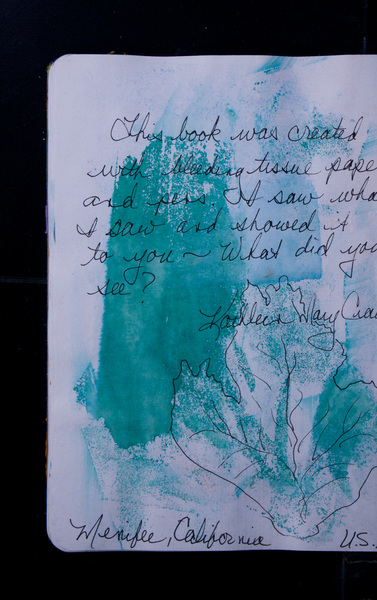 This book was created
with bleeding tissue pape
and pens. I saw wha
I saw and showed it
to you ~ What did you
see?
Kathleen Mary Cra
Menifee, California U.S.